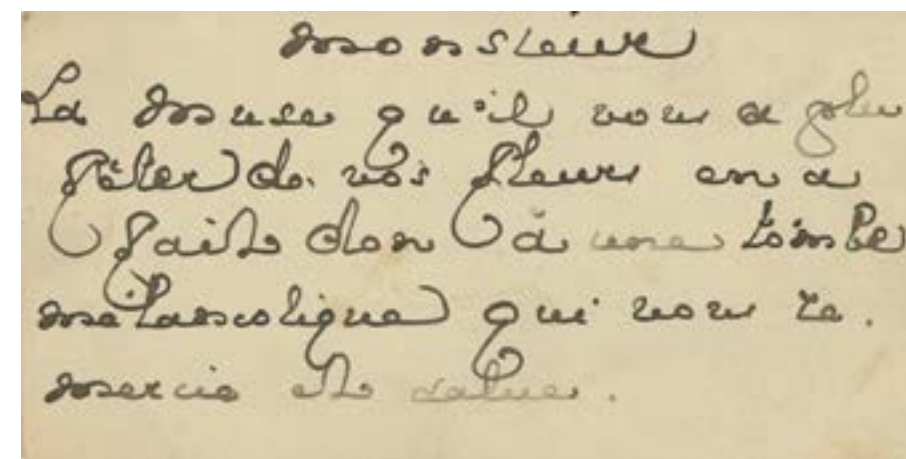 Monsieur
La Muse qu'il vous a plu
fêter de vos fleurs en a
fait don à une tombe
mélancolique qui vous re.
mercie et salue.